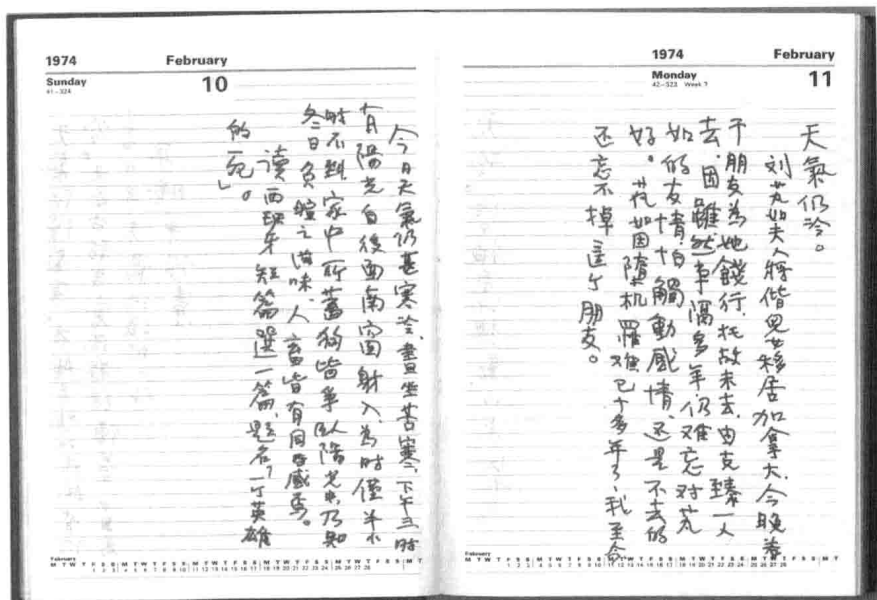 1974 February
Sunday 10
41-324
今日天氣仍甚寒冷，晝坐苦寒，下午三時
有陽光自後面南窗射入，為時僅半小
時不到，家中所蓄狗皆爭臥陽光中，乃知
冬日負暄之滋味，人畜皆有同感焉。
讀西班牙短篇選一篇，題名「一个英雄
的死」。
February
M T W T F S S M T W T F S S M T W T F S S M T W T F S S M T
1 2 3 4 5 6 7 8 9 10 11 12 13 14 15 16 17 18 19 20 21 22 23 24 25 26 27 28
1974 February
Monday 11
42-323 Week 7
天氣仍冷。
刘芃如夫人將偕兒女移居加拿大，今晚
干朋友為她餞行，托故未去，由克臻一人
去，因雖然事隔多年，仍难忘对芃
如的友情，怕觸動感情，还是不去的
好。芃如因墮机罹难已十多年了，我至今
还忘不掉這个朋友。
February
M T W T F S S M T W T F S S M T W T F S S M T W T F S S M T
1 2 3 4 5 6 7 8 9 10 11 12 13 14 15 16 17 18 19 20 21 22 23 24 25 26 27 28